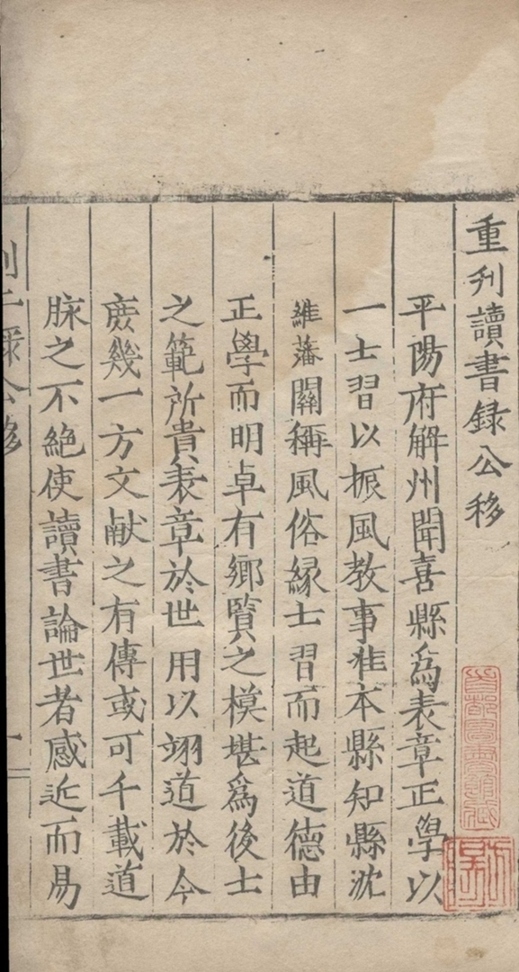 重刋讀書録公移
平陽府解州聞喜縣爲表章正學以
一士習以振風教事准本縣知縣沈
維藩關稱風俗縁士習而起道德由
正學而明卓有鄉賢之模堪爲後士
之範所貴表章於世用以翊道於今
庻幾一方文献之有傳或可千載道
脉之不絶使讀書論世者感近而易